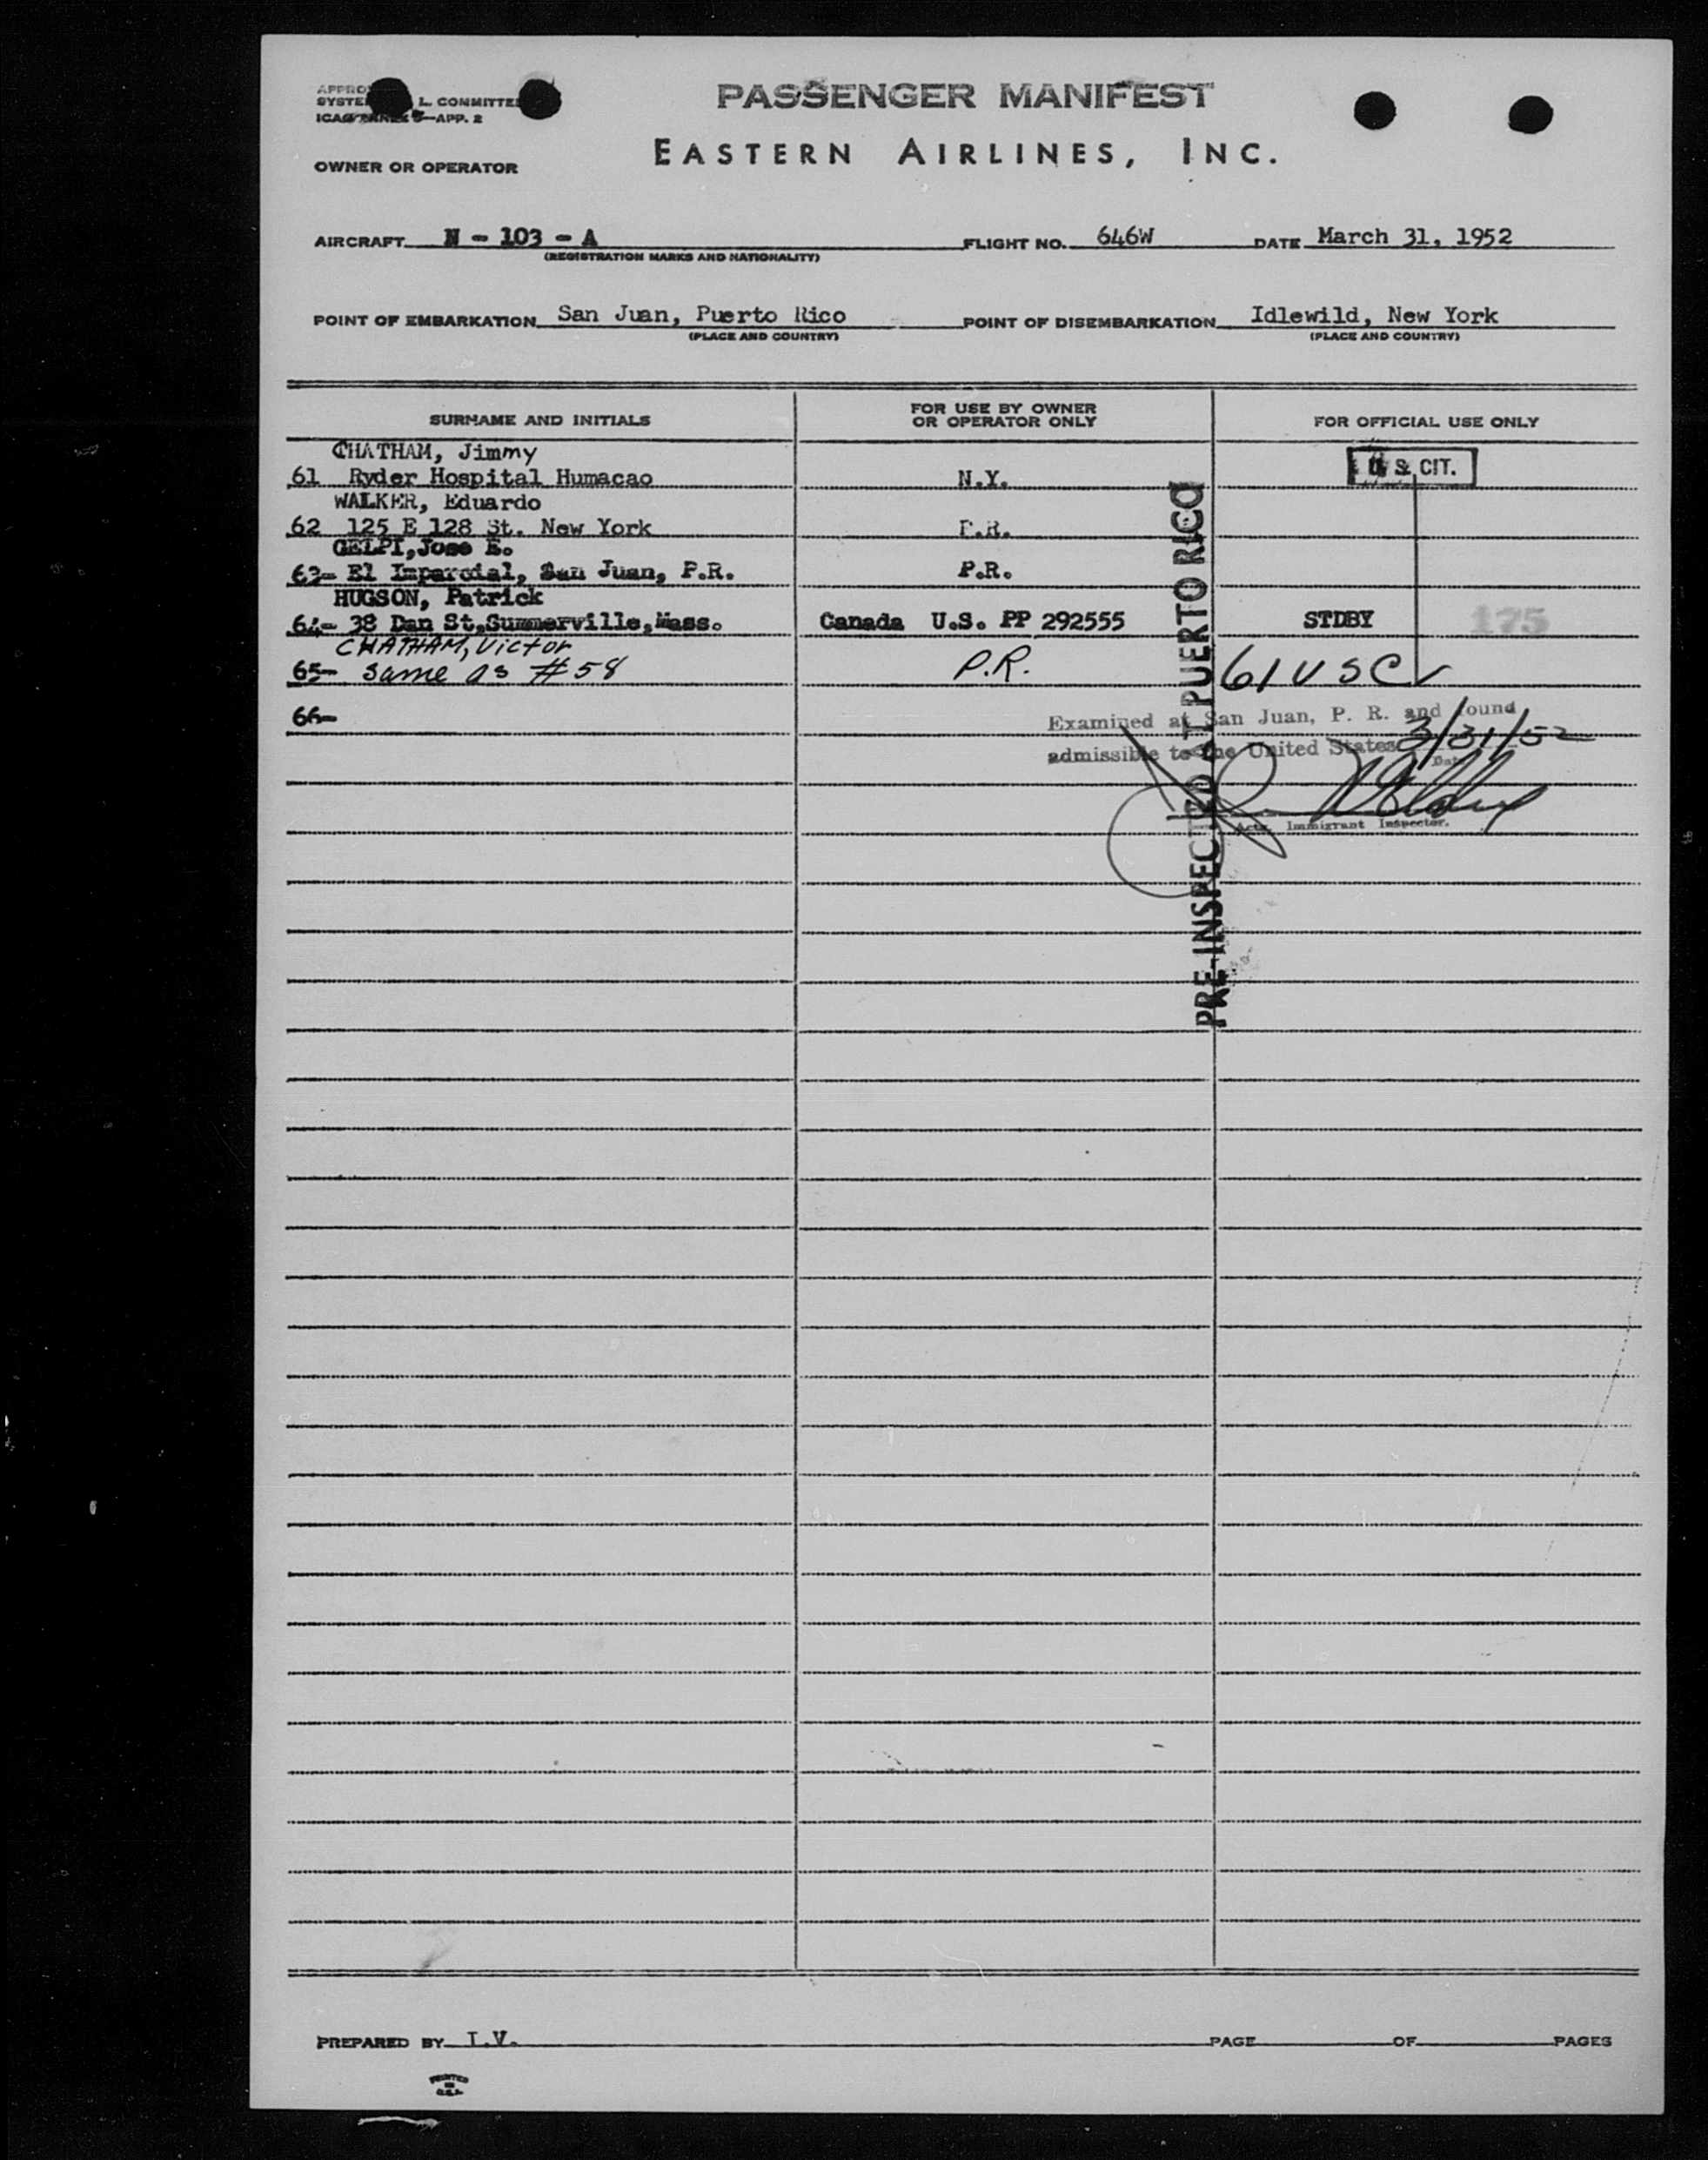 PASSENGER MANIFEST
L. COMMITTEE
APP. 2
EASTERN AIRLINES, INC.
OWNER OR OPERATOR
AIRCRAFT N - 103 - A FLIGHT NO. 646W DATE March 31, 1952
(REGISTRATION MARKS AND NATIONALITY)
POINT OF EMBARKATION San Juan, Puerto Rico POINT OF DISEMBARKATION Idlewild, New York
(PLACE AND COUNTRY) (PLACE AND COUNTRY)
SURNAME AND INITIALS FOR USE BY OWNER OR OPERATOR ONLY FOR OFFICIAL USE ONLY
CHATHAM, Jimmy
61 Ryder Hospital Humacao N.Y. U S CIT.
WALKER, Eduardo
62 125 E 128 St. New York P.R.
GELPI, Jose E.
63- El Imparcial, San Juan, P.R. P.R.
HUGSON, Patrick
64- 38 Dan St, Summerville, Mass. Canada U.S. PP 292555 STDBY 175
CHATHAM, Victor
65- Same as #58 P.R. 61 USC
66-
Examined at San Juan, P. R. and found
admissible to the United States 3/31/52
Date
Immigrant Inspector.
PRE-INSPECTED AT PUERTO RICO
PREPARED BY I.V. PAGE OF PAGES
PRINTED
IN
U.S.A.